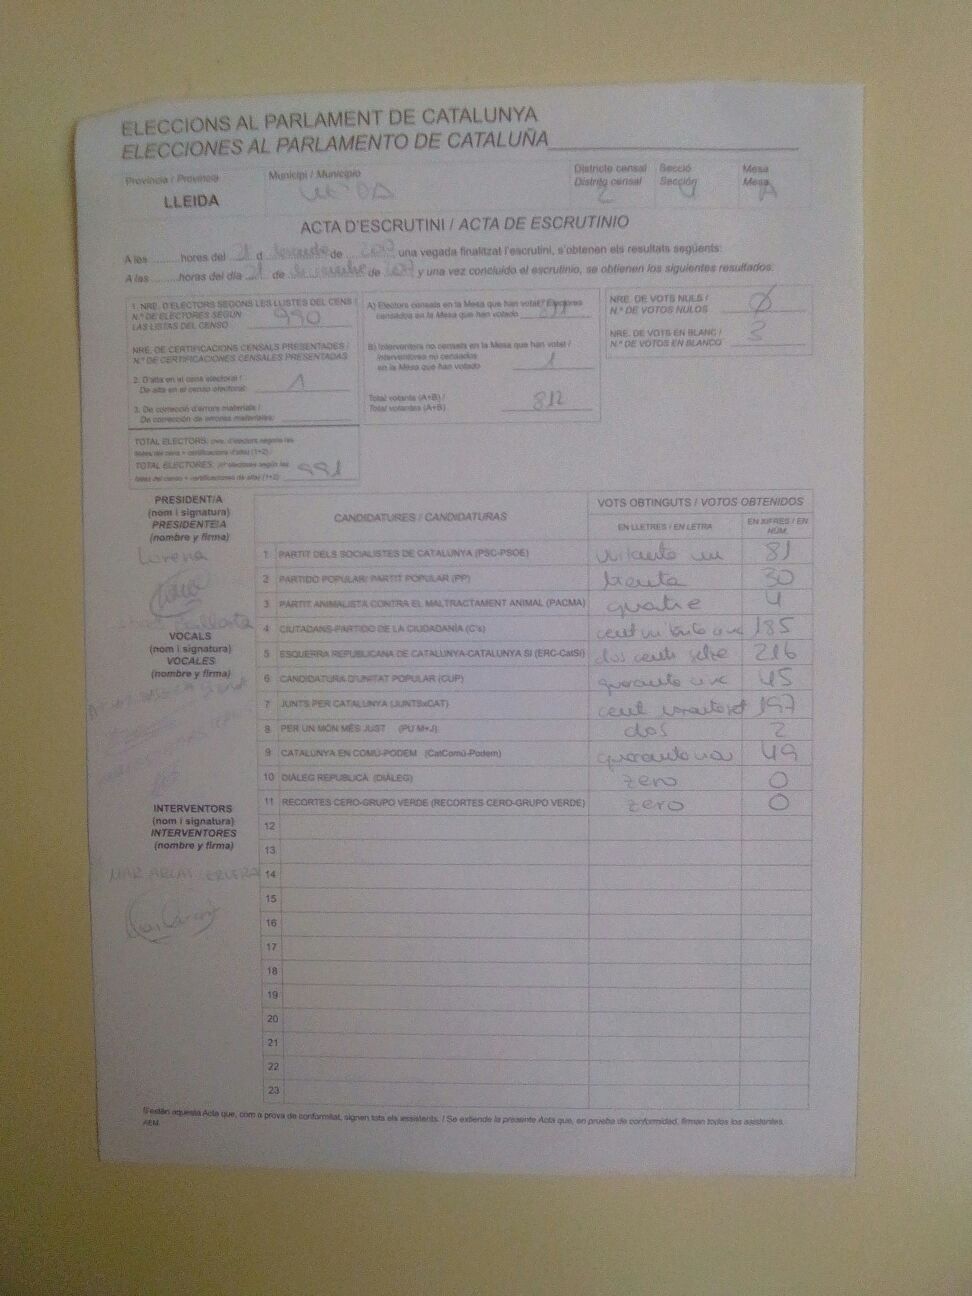 ELECCIONS AL PARLAMENT DE CATALUNYA
ELECCIONES AL PARLAMENTO DE CATALUÑA
Provincia / Provincia
LLEIDA
Municipi / Municipio
Districte censal
Distrito censal
2
Secció
Sección
4
Mesa
Mesa
A
ACTA D'ESCRUTINI / ACTA DE ESCRUTINIO
A les ..........hores del 21 d de 2017 una vegada finalitzat l'escrutini, s'obtenen els resultats següents:
A las ..........horas del día 21 de de 2017 y una vez concluido el escrutinio, se obtienen los siguientes resultados:
1. NRE. D'ELECTORS SEGONS LES LLISTES DEL CENS /
N.º DE ELECTORES SEGÚN
LAS LISTAS DEL CENSO 990
NRE. DE CERTIFICACIONS CENSALS PRESENTADES /
N.º DE CERTIFICACIONES CENSALES PRESENTADAS
2. D'alta en el cens electoral /
De alta en el censo electoral: 1
3. De correcció d'errors materials /
De corrección de errores materiales:
TOTAL ELECTORS: (nre. d'electors segons les
llistes del cens + certificacions d'alta) (1+2) /
TOTAL ELECTORES: (nº electores según las
listas del censo + certificaciones de alta) (1+2) 991
A) Electors censats en la Mesa que han votat / Electores
censados en la Mesa que han votado 811
B) Interventors no censats en la Mesa que han votat /
Interventores no censados
en la Mesa que han votado 1
Total votants (A+B) /
Total votantes (A+B) 812
NRE. DE VOTS NULS /
N.º DE VOTOS NULOS Ø
NRE. DE VOTS EN BLANC /
N.º DE VOTOS EN BLANCO 3
PRESIDENT/A
(nom i signatura)
PRESIDENTE/A
(nombre y firma)
Lorena
VOCALS
(nom i signatura)
VOCALES
(nombre y firma)
INTERVENTORS
(nom i signatura)
INTERVENTORES
(nombre y firma)
CANDIDATURES / CANDIDATURAS
VOTS OBTINGUTS / VOTOS OBTENIDOS
EN LLETRES / EN LETRA
EN XIFRES / EN NÚM.
1 PARTIT DELS SOCIALISTES DE CATALUNYA (PSC-PSOE) vuitanta un 81
2 PARTIDO POPULAR/ PARTIT POPULAR (PP) trenta 30
3 PARTIT ANIMALISTA CONTRA EL MALTRACTAMENT ANIMAL (PACMA) quatre 4
4 CIUTADANS-PARTIDO DE LA CIUDADANÍA (C's) 185
5 ESQUERRA REPUBLICANA DE CATALUNYA-CATALUNYA SÍ (ERC-CatSí) dos cents setze 216
6 CANDIDATURA D'UNITAT POPULAR (CUP) 45
7 JUNTS PER CATALUNYA (JUNTSxCAT) 197
8 PER UN MÓN MÉS JUST (PUM+J) dos 2
9 CATALUNYA EN COMÚ-PODEM (CatComú-Podem) quaranta nou 49
10 DIÀLEG REPUBLICÀ (DIÀLEG) zero 0
11 RECORTES CERO-GRUPO VERDE (RECORTES CERO-GRUPO VERDE) zero 0
12
13
14
15
16
17
18
19
20
21
22
23
S'estén aquesta Acta que, com a prova de conformitat, signen tots els assistents. / Se extiende la presente Acta que, en prueba de conformidad, firman todos los asistentes.
AEM.